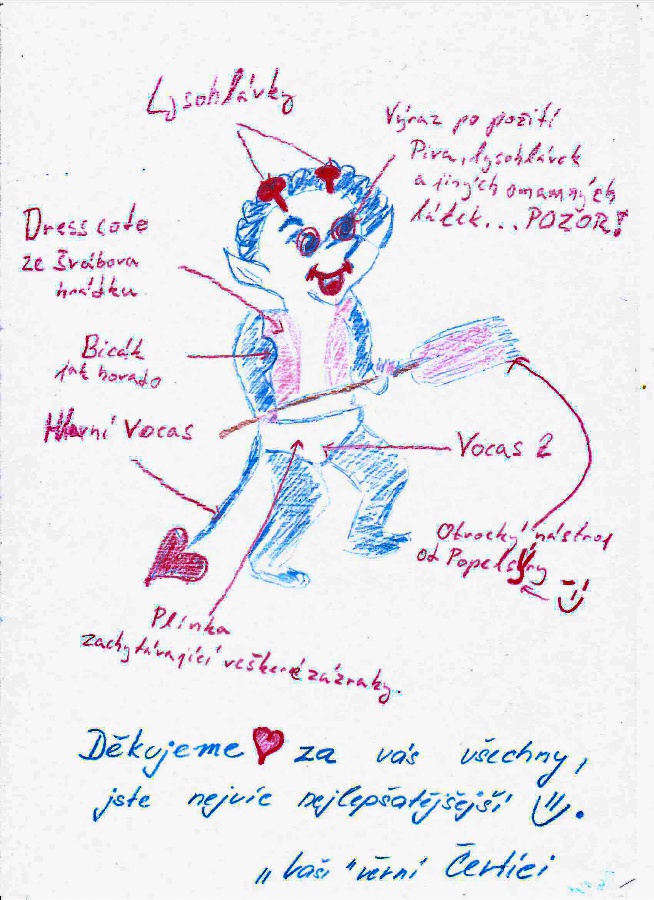 Lysohlávky
Výraz po požití
Piva, lysohlávek
a jiných omamných
látek... POZOR!
Dress cote
ze Švábova
hrádku
Bicák
jak hovado
Hlavní Vocas
Vocas 2
Otrocký nástroj
od Popelšyny
Plínka
zachytávající veškeré zázraky.
Děkujeme za vás všechny,
jste nejvíc nejlepšatějšejší
„Vaši“ věrní Čertíci